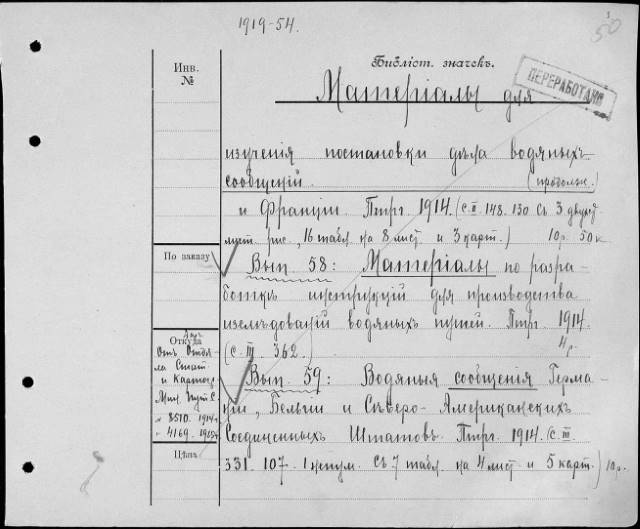 1919-54.
50
Инв. №
Библіот. значекъ.
ПЕРЕРАБОТАНО
Матеріалы для
изученія постановки дѣла водяныхъ
сообщеній. (продолж.)
и Франціи. Птрг. 1914. (с. II. 148. 130 съ 3 двухд
лист. рис., 16 табл. на 8 лист. и 3 карт.) 10 р. 50 к
По заказу
Вып. 58: Матеріалы по разра-
боткѣ инструкцій для производства
изслѣдованій водяныхъ путей. Птрг. 1914.
(с. III. 362.) 4 р.
Откуда
Отъ Отдѣ-
ла Стат.
и Картогр.
Мин. Пут. С.
8510. 1914
4169.
Вып. 59: Водяныя сообщенія Герма-
ніи, Бельгіи и Сѣверо-Американскихъ
Соединенныхъ Штатовъ. Птрг. 1914. (с. III.
Цѣнъ
331. 107. 1 ненум. съ 7 табл. на 4 лист. и 5 карт.) 10 р.